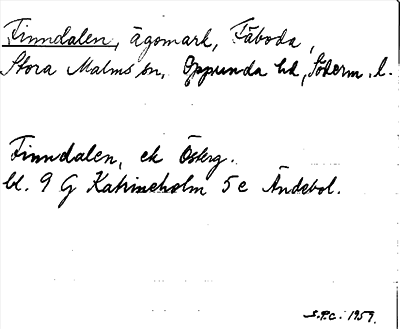 Finndalen, ägomark, Fäboda,
Stora Malms sn, Oppunda hd, Söderm. l.
Finndalen, ek Österg.
bl. 9 G Katrineholm 5 e Ändebol.
S.P.C. 1959.